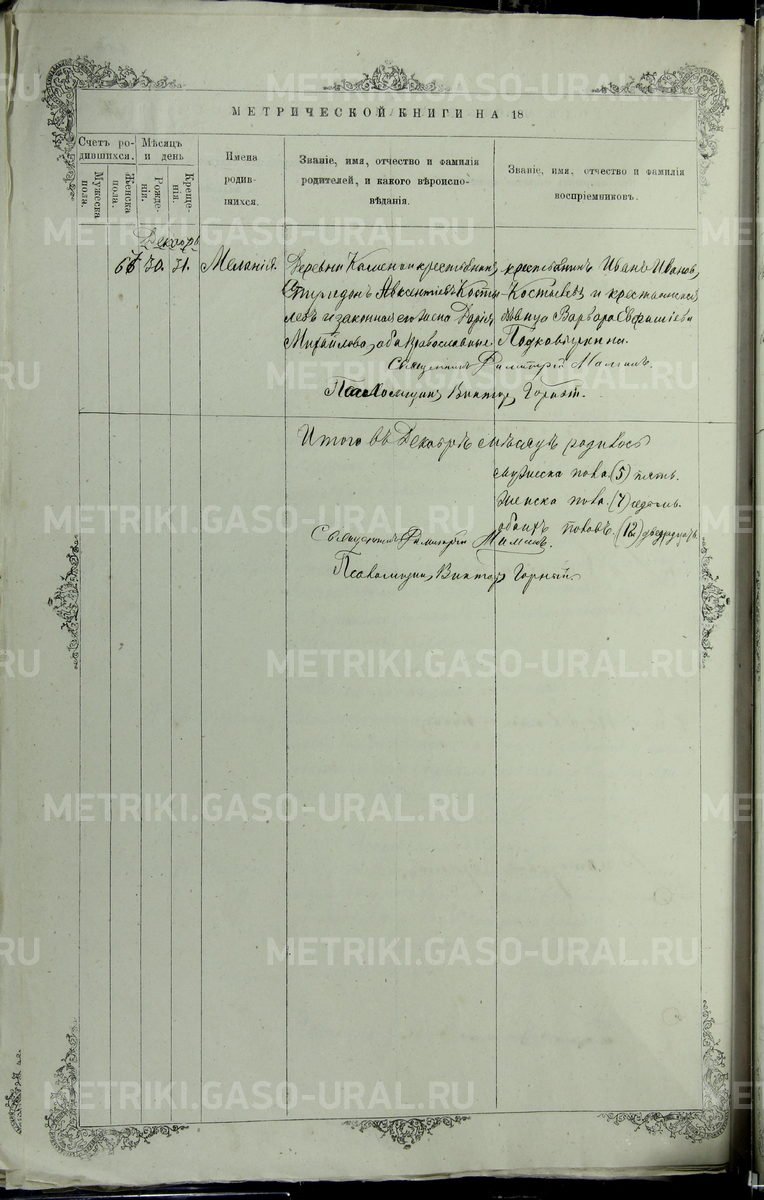 МЕТРИЧЕСКОЙ КНИГИ НА 18
Счетъ ро-
дившихся.
Мужеска
пола.
Женска
пола.
Мѣсяцъ
и день
Рожде-
нія.
Креще-
нія.
Имена
родив-
шихся.
Званіе, имя, отчество и фамилія
родителей, и какого вѣроиспо-
вѣданія.
Званіе, имя, отчество и фамилія
воспріемниковъ.
Декабрь
30. 31. Меланія.
Деревни крестьянинъ
Спиридонъ Авксентіевъ Косты-
левъ и законная его жена Дарія
Михайлова, оба православные.
крестьянинъ Иванъ Ивановъ
Костылевъ и крестьянская
дѣвица Варвара
Священникъ Димитрій Маминъ.
Псаломщикъ Викторъ Горный.
Итого въ Декабрѣ мѣсяцѣ родилось
мужеска пола (5) пять.
женска пола (7) седмь.
обоихъ половъ (12) двенадцать.
Священникъ Димитрій Маминъ.
Псаломщикъ Викторъ Горный.
METRIKI.GASO-URAL.RU